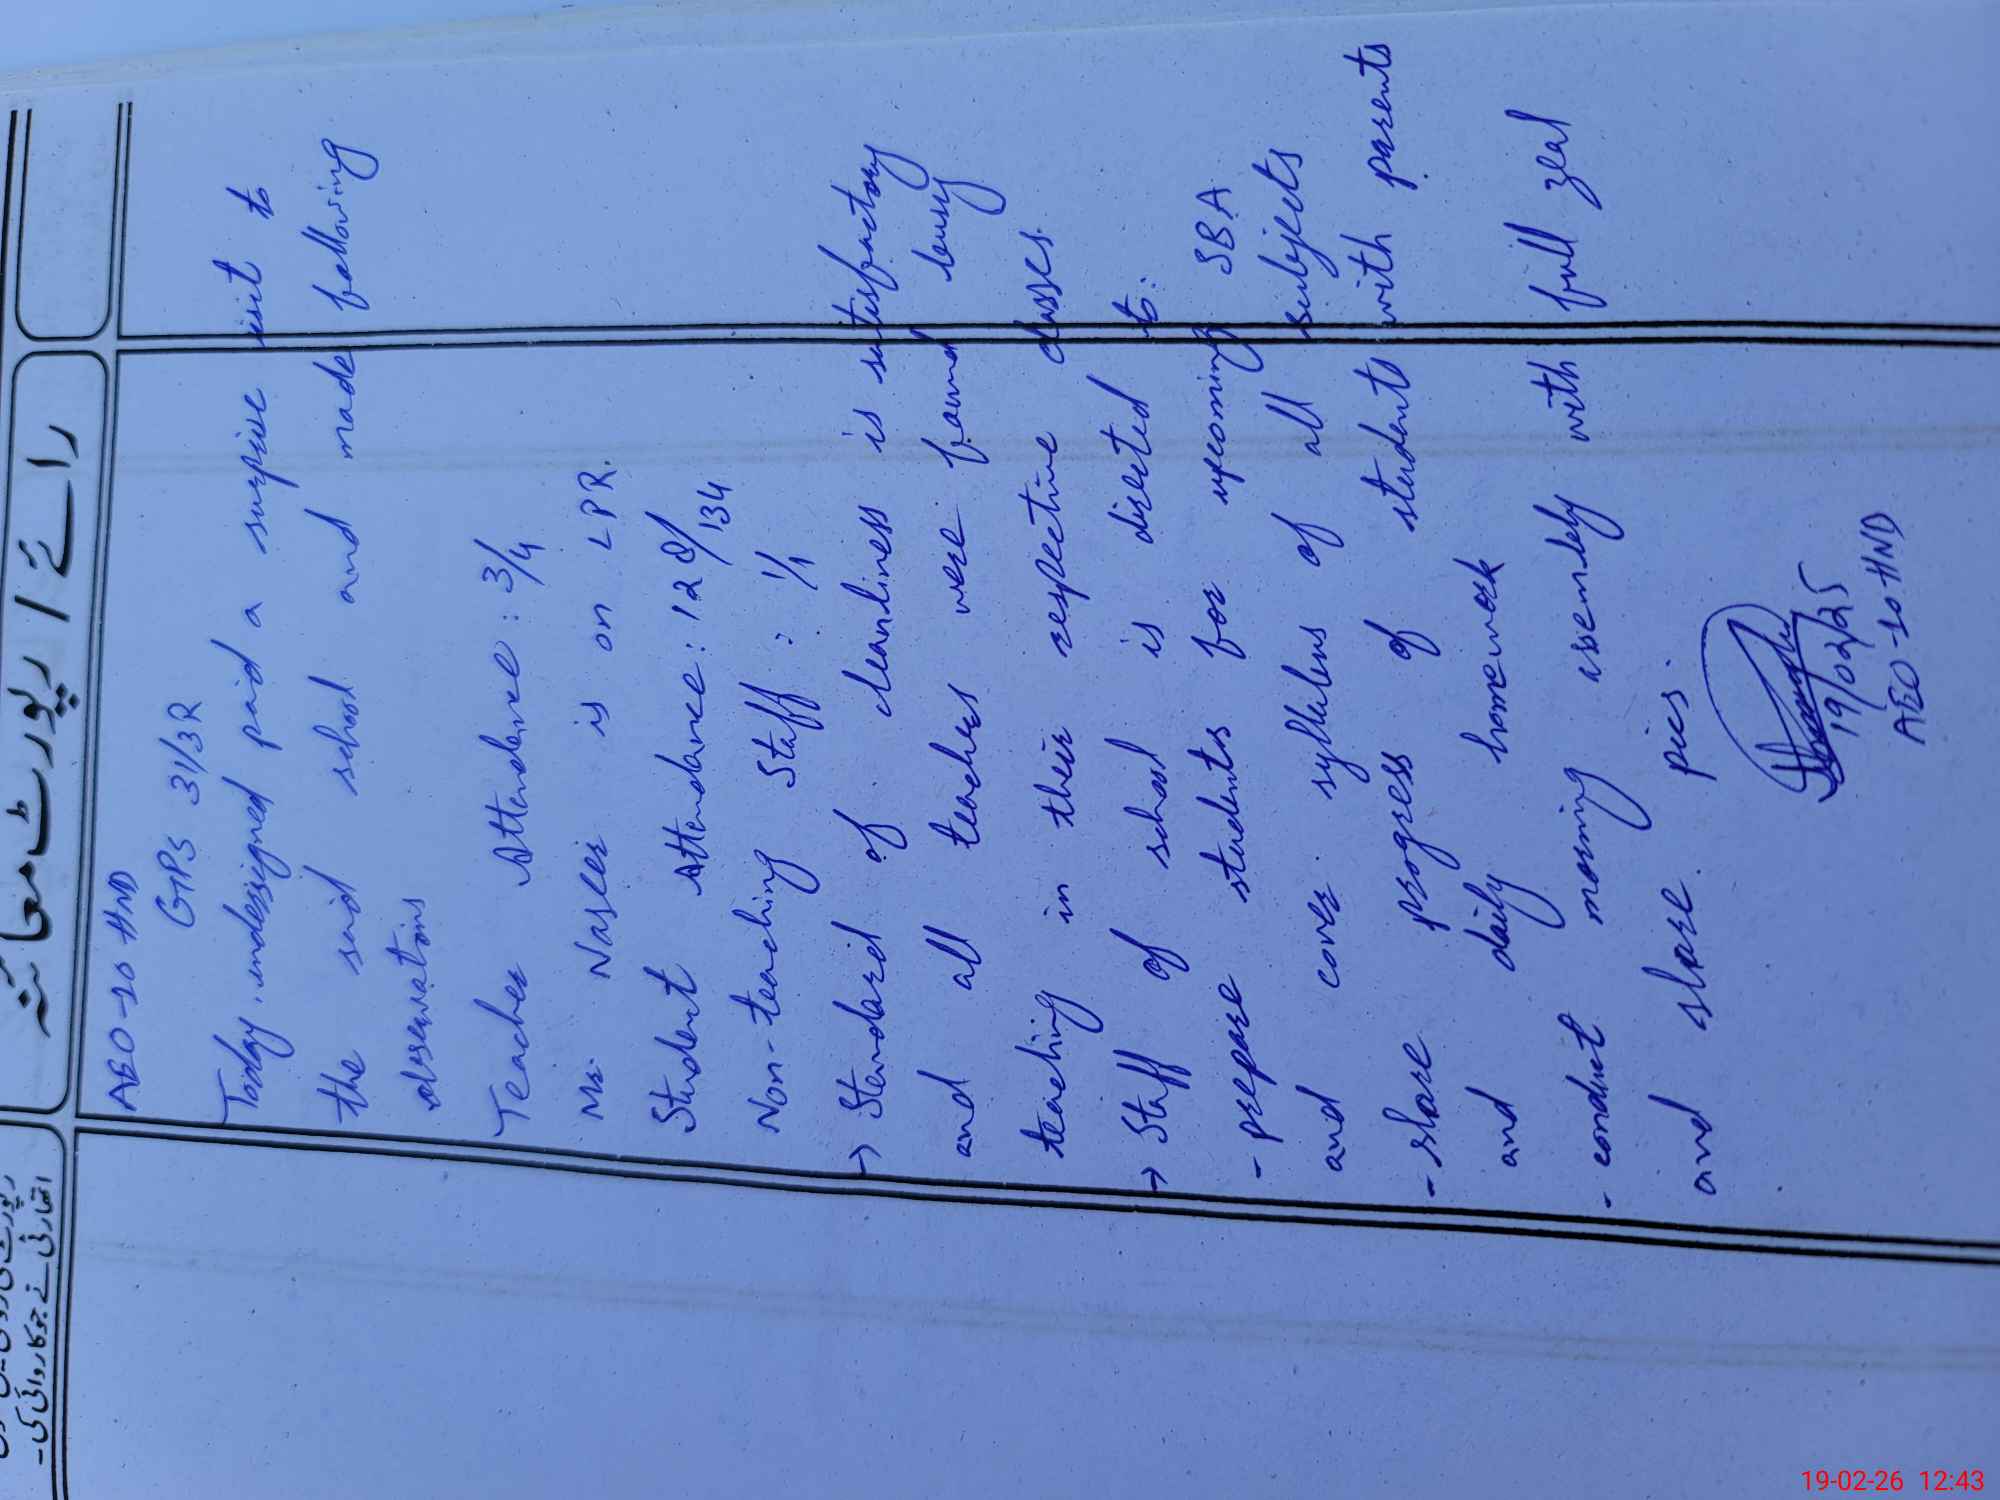 رائے / رپورٹ معائنہ
اتھارٹی نے جو کاروائی کی-
AEO-10 HND
GPS 31/3R
Today, undersigned paid a surprise visit to
the said school and made following
observations
Teacher Attendance : 3/4
Mr. Naseer is on LPR.
Student Attendance : 128/134
Non-teaching Staff : 1/1
→ Standard of cleanliness is satisfactory
and all teachers were found busy
teaching in their respective classes.
→ Staff of school is directed to:
- prepare students for upcoming SBA
and cover syllabus of all subjects
- share progress of students with parents
and daily homework
- conduct morning assembly with full zeal
and share pics.
19/02/25
AEO-10-HND
19-02-26 12:43